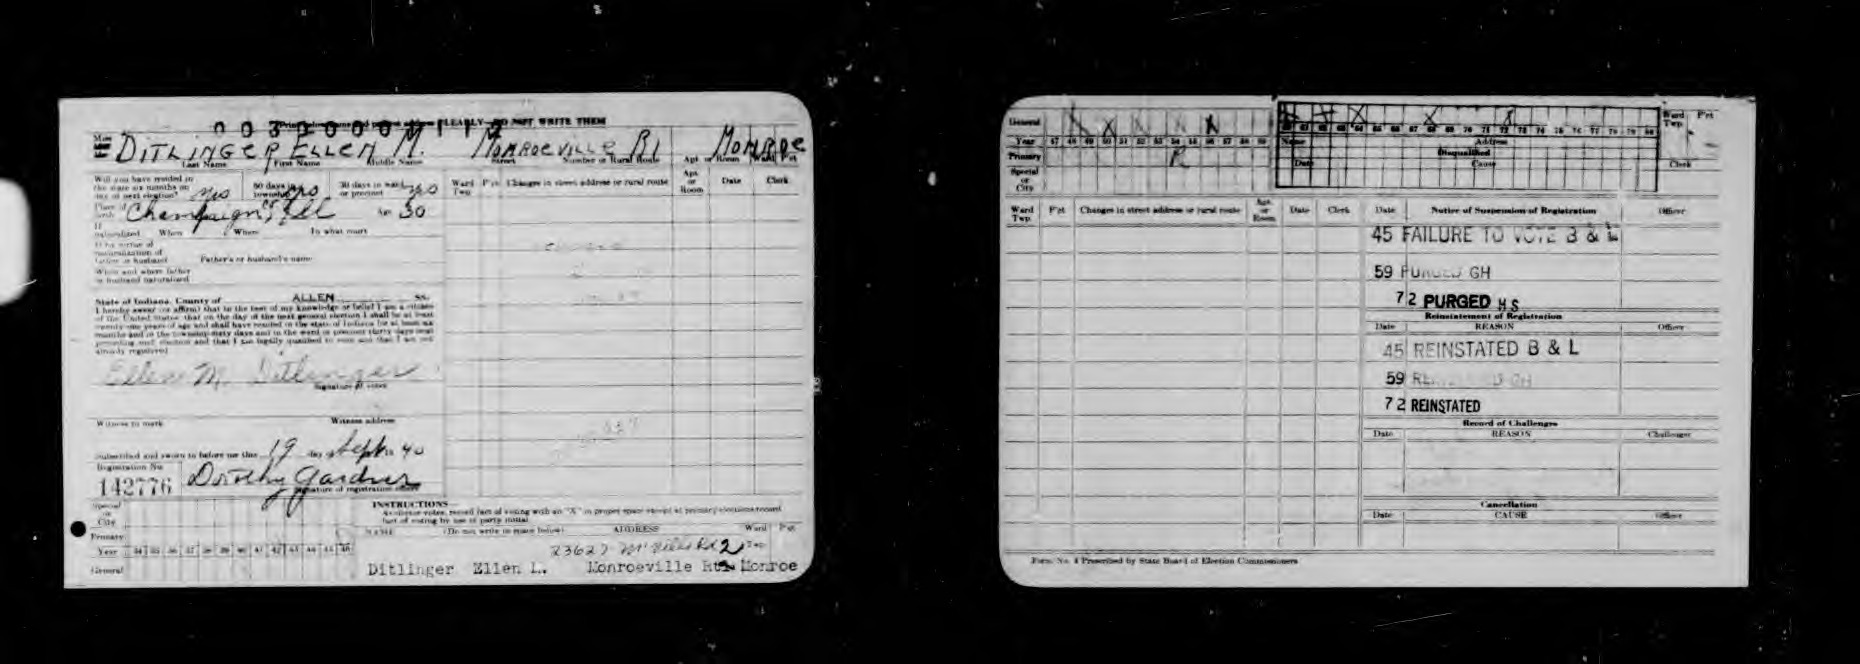 0030000112
CLEARLY DO NOT WRITE THEM
DITLINGER ELLEN M. MONROEVILLE R1 MONROE
Last Name First Name Middle Name Street Number or Rural Route Apt or Room Ward Pct
Will you have resided in
the state six months on
day of next election? yes 60 days in township yes 30 days in ward or precinct yes
Place of birth Champaign, Ill Age 30
If naturalized When Where In what court
If by virtue of
naturalization of
father or husband Father's or husband's name
When and where father
or husband naturalized
Ward Twp. P'ct Changes in street address or rural route Apt. or Room Date Clerk
State of Indiana, County of ALLEN ss.
I hereby swear (or affirm) that to the best of my knowledge or belief I am a citizen
of the United States, that on the day of the next general election I shall be at least
twenty-one years of age and shall have resided in the state of Indiana for at least six
months and in the township sixty days and in the ward or precinct thirty days next
preceding such election and that I am legally qualified to vote and that I am not
already registered
Ellen M. Ditlinger
Signature of voter
Witness to mark Witness address
Subscribed and sworn to before me this 19 day of Sept 19 40
Registration No. 142776
Dorothy Gardner
Signature of registration officer
Special or City
Primary
Year 34 35 36 37 38 39 40 41 42 43 44 45 46
General
INSTRUCTIONS
fact of voting by use of party initial
NAME (Do not write in space below) ADDRESS Ward P'ct
23627 Rd 2 Twp
Ditlinger Ellen L. Monroeville Rt Monroe
General X X X
Year 47 48 49 50 51 52 53 54 55 56 57 58 59
Primary R
Special or City
60 61 62 63 64 65 66 67 68 69 70 71 72 73 74 75 76 77 78 79 80
Name Address
Disqualified
Date Cause
Ward Twp. P'ct
Clerk
Ward Twp. P'ct Changes in street address or rural route Apt. or Room Date Clerk
Date Notice of Suspension of Registration Officer
45 FAILURE TO VOTE B & L
59 PURGED GH
72 PURGED HS
Reinstatement of Registration
Date REASON Officer
45 REINSTATED B & L
59 GH
72 REINSTATED
Record of Challenges
Date REASON Challenger
Cancellation
Date CAUSE Officer
Form No. 4 Prescribed by State Board of Election Commissioners